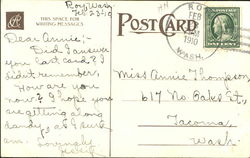 Roy Wash.
Feb 23-10
THIS SPACE FOR
WRITING MESSAGES
POST CARD
RO
FEB
1910
WASH.
Dear Annie;-
Did I answer
you last card? I
didn't remember.
How are you
now? I hope you
are getting along
dandy, as I sure
am.
Lovingly
Miss Annie Thompson
617 No. Oakes St.
Tacoma,
Wash.